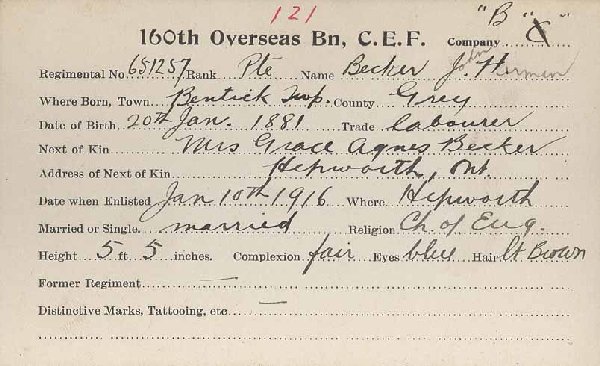 121 "B"
160th Overseas Bn, C.E.F. Company "C"
Regimental No 651257 Rank Pte Name Becker J. John Herman
Where Born, Town Bentick Twp. County Grey
Date of Birth 20th Jan. 1881 Trade labourer
Next of Kin Mrs Grace Agnes Becker
Address of Next of Kin Hepworth, Ont
Date when Enlisted Jan 10th 1916 Where Hepworth
Married or Single. married Religion Ch of Eng.
Height 5 ft 5 inches. Complexion fair Eyes blue Hair lt Brown
Former Regiment —
Distinctive Marks, Tattooing, etc —